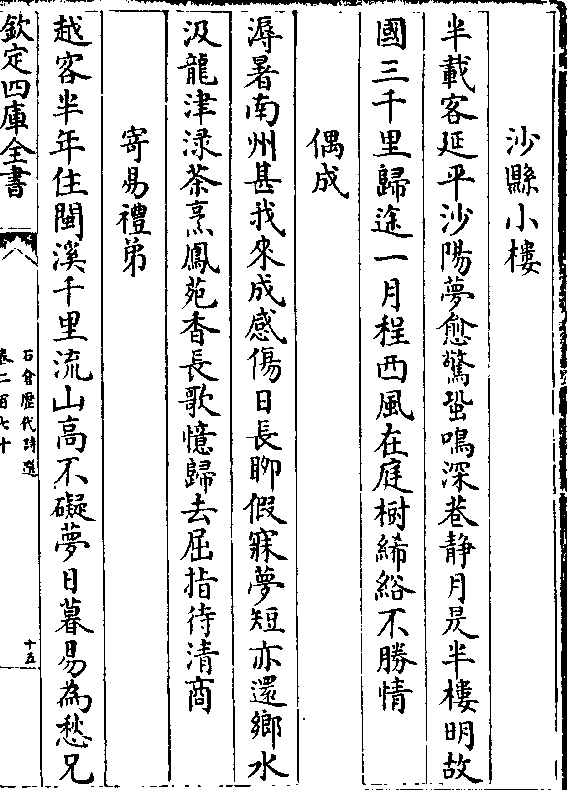 沙縣小樓
半載客延平沙陽夢愈驚蛩鳴深巷静月是半樓明故
國三千里歸途一月程西風在庭樹絺綌不勝情
偶成
溽暑南州甚我來成感傷日長聊假寐夢短亦還鄉水
汲龍津淥茶烹鳳苑香長歌憶歸去屈指待清商
寄易禮弟
越客半年住閩溪千里流山高不礙夢日暮易為愁兄
欽定四庫全書
石倉歷代詩選
卷二百七十
十五